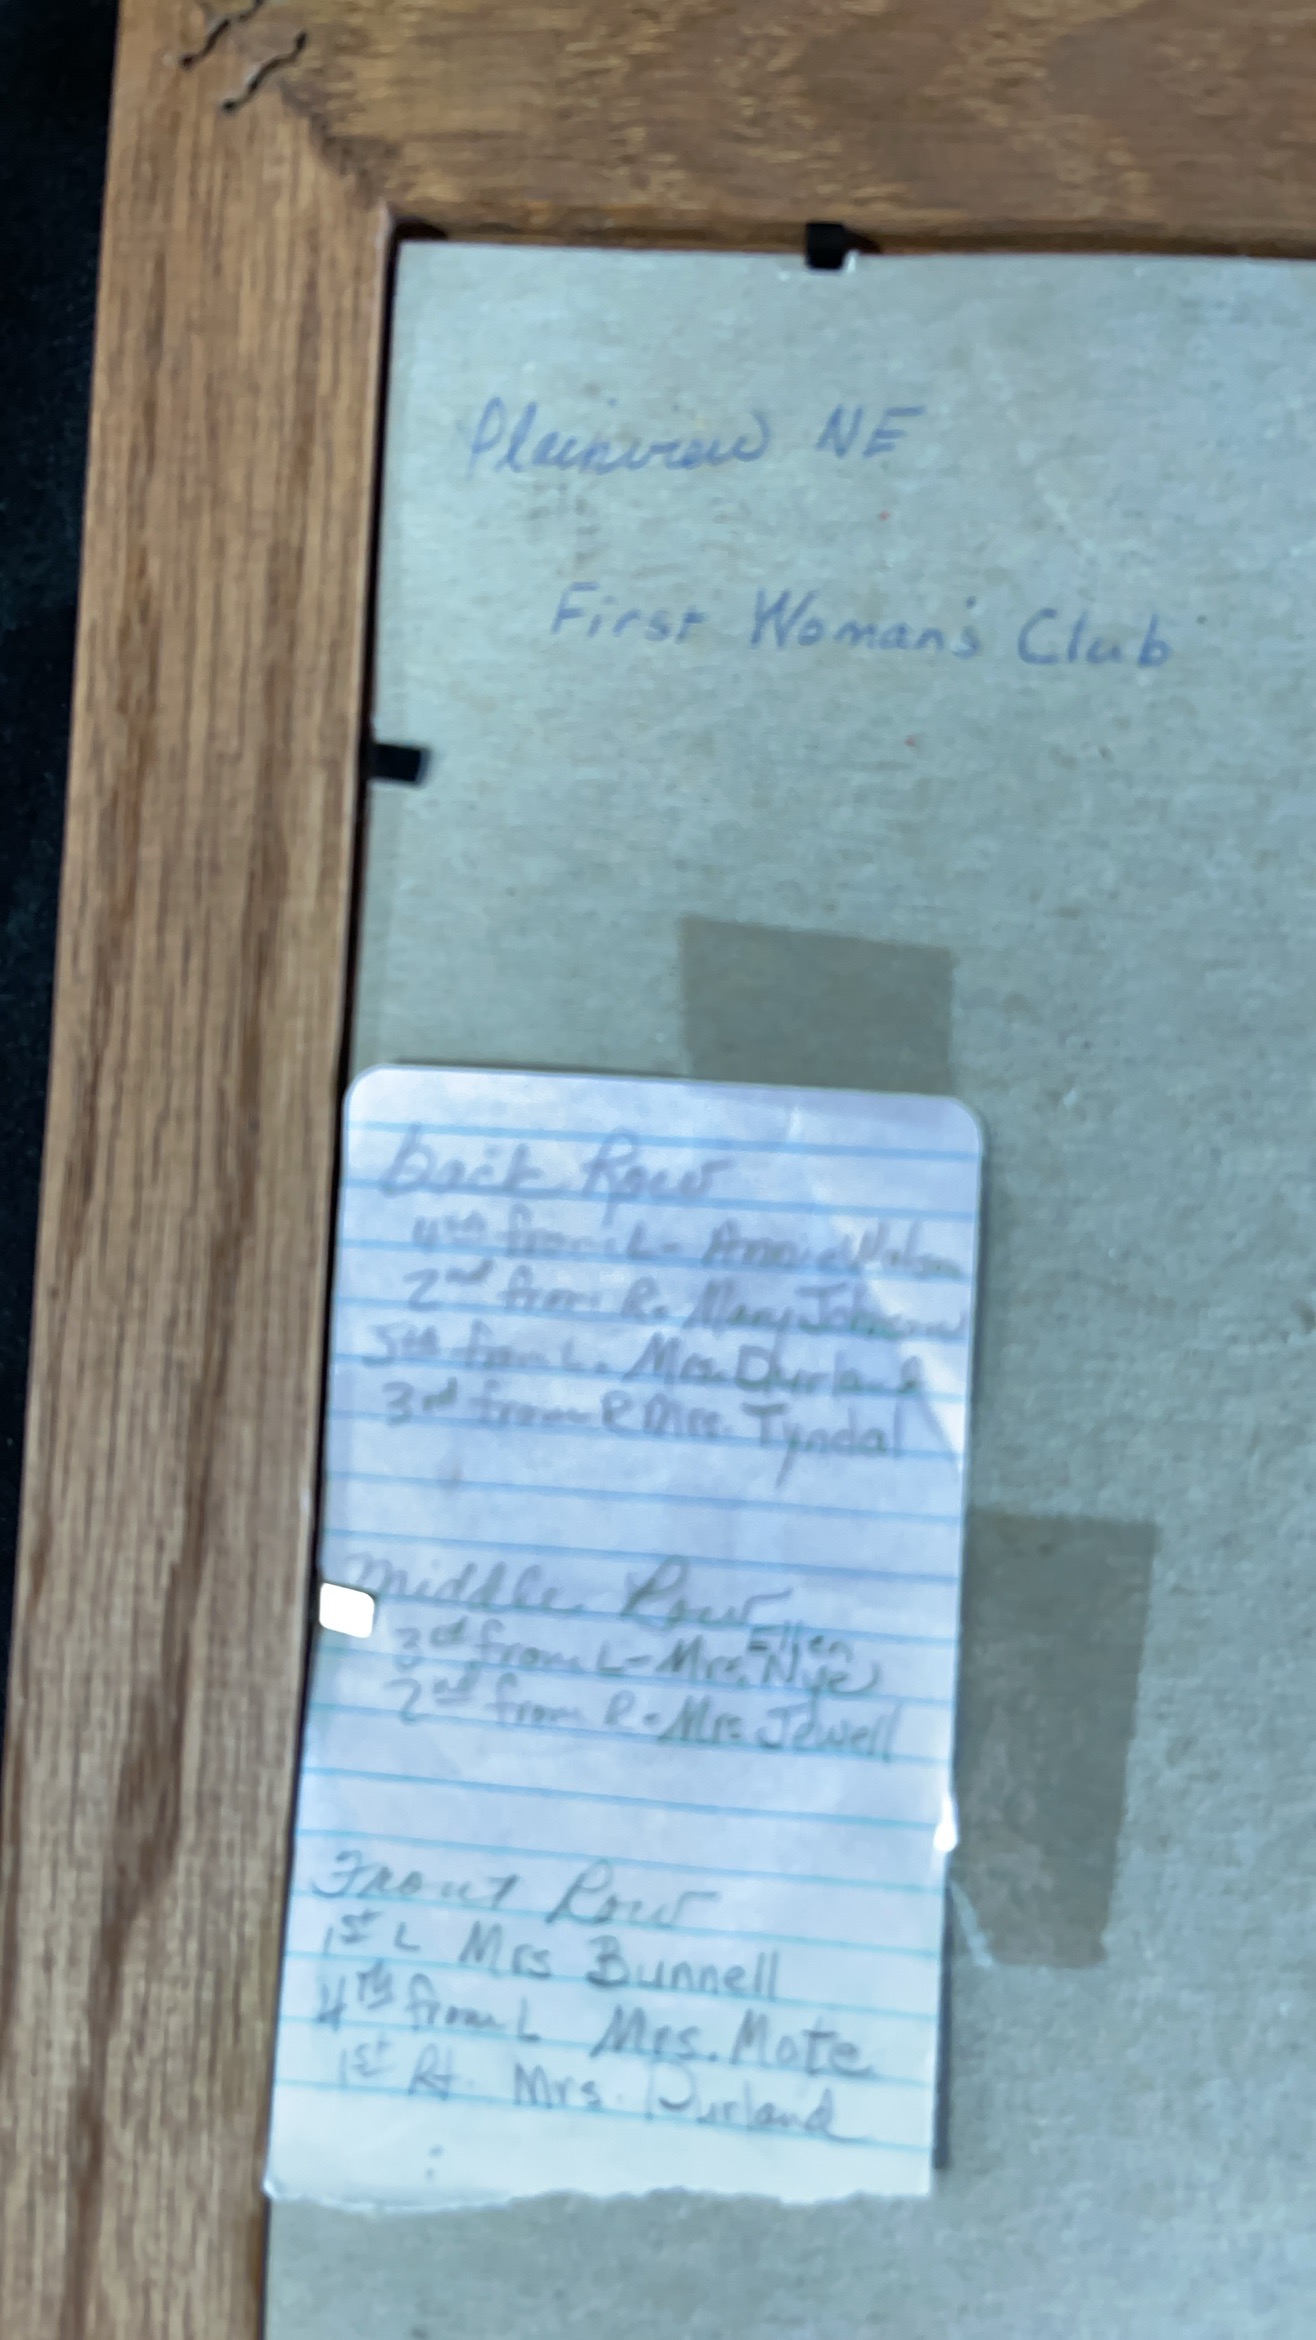 Plainview NE
First Woman's Club
back Row
4th from L- Annie
2nd from R. Mary Johnson
5th from L. Mrs. Durland
3rd from R Mrs. Tyndal
Middle Row
Ellen
3rd from L- Mrs. Nye
2nd from R- Mrs. Jewell
Front Row
1st L Mrs Bunnell
4th from L Mrs. Mote
1st Rt. Mrs. Durland